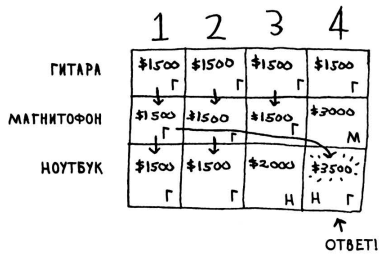 1 2 3 4
ГИТАРА $1500 Г $1500 Г $1500 Г $1500 Г
МАГНИТОФОН $1500 Г $1500 Г $1500 Г $3000 М
НОУТБУК $1500 Г $1500 Г $2000 Н $3500 Н Г
ОТВЕТ!